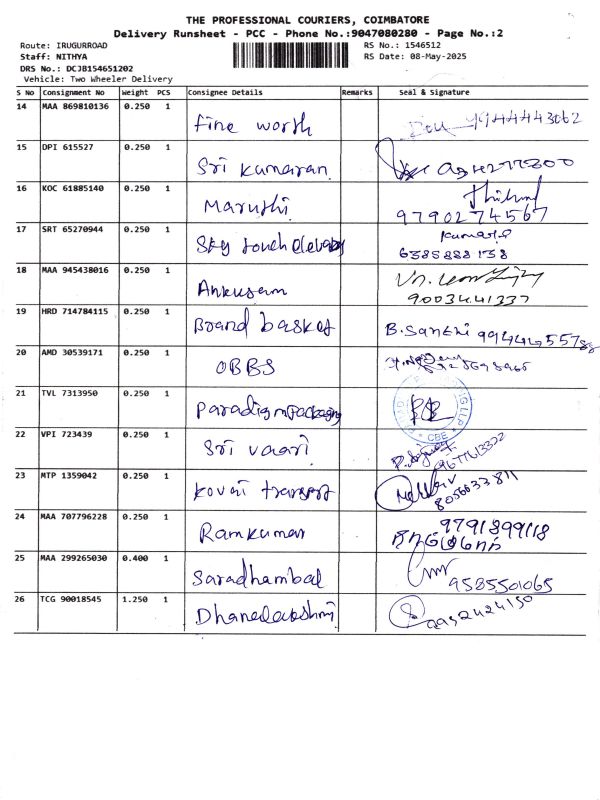 THE PROFESSIONAL COURIERS, COIMBATORE
Delivery Runsheet - PCC - Phone No.:9047080280 - Page No.:2
Route: IRUGURROAD
RS No.: 1546512
Staff: NITHYA
RS Date: 08-May-2025
DRS No.: DCJB154651202
Vehicle: Two Wheeler Delivery
S No Consignment No Weight PCS Consignee Details Remarks Seal & Signature
14 MAA 869810136 0.250 1 fine worth 9944443062
15 DPI 615527 0.250 1 Sri Kumaran
16 KOC 61885140 0.250 1 Maruthi 9790274567
17 SRT 65270944 0.250 1 Sky touch 6385888138
18 MAA 945438016 0.250 1 Ankusam 9003441337
19 HRD 714784115 0.250 1 Brand basket B.Santhi
20 AMD 30539171 0.250 1 OBBS
21 TVL 7313950 0.250 1 Paradigm Packaging CBE
22 VPI 723439 0.250 1 Sri vaari 9677613322
23 MTP 1359042 0.250 1 Kovai transport 8056633811
24 MAA 707796228 0.250 1 Ramkumar 9791899118
25 MAA 299265030 0.400 1 Saradhambal 9585501065
26 TCG 90018545 1.250 1 Dhanalakshmi